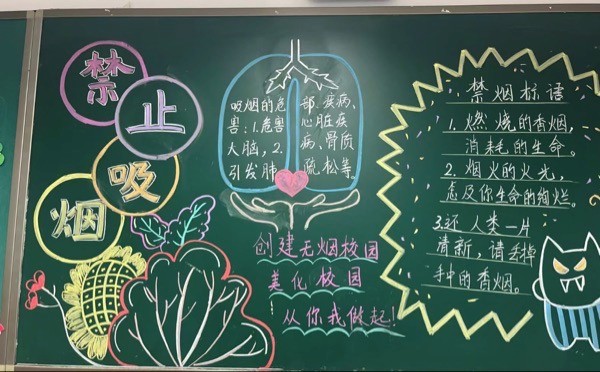 禁
止
吸
烟
吸烟的危
害:1.危害
大脑,2.
引发肺
部疾病、
心脏疾
病、骨质
疏松等。
创建无烟校园
美化校园
从你我做起!
禁烟标语
1.燃烧的香烟,
消耗的生命。
2.烟火的火光,
危及你生命的绚烂。
3.还人类一片
清新,请丢掉
手中的香烟。